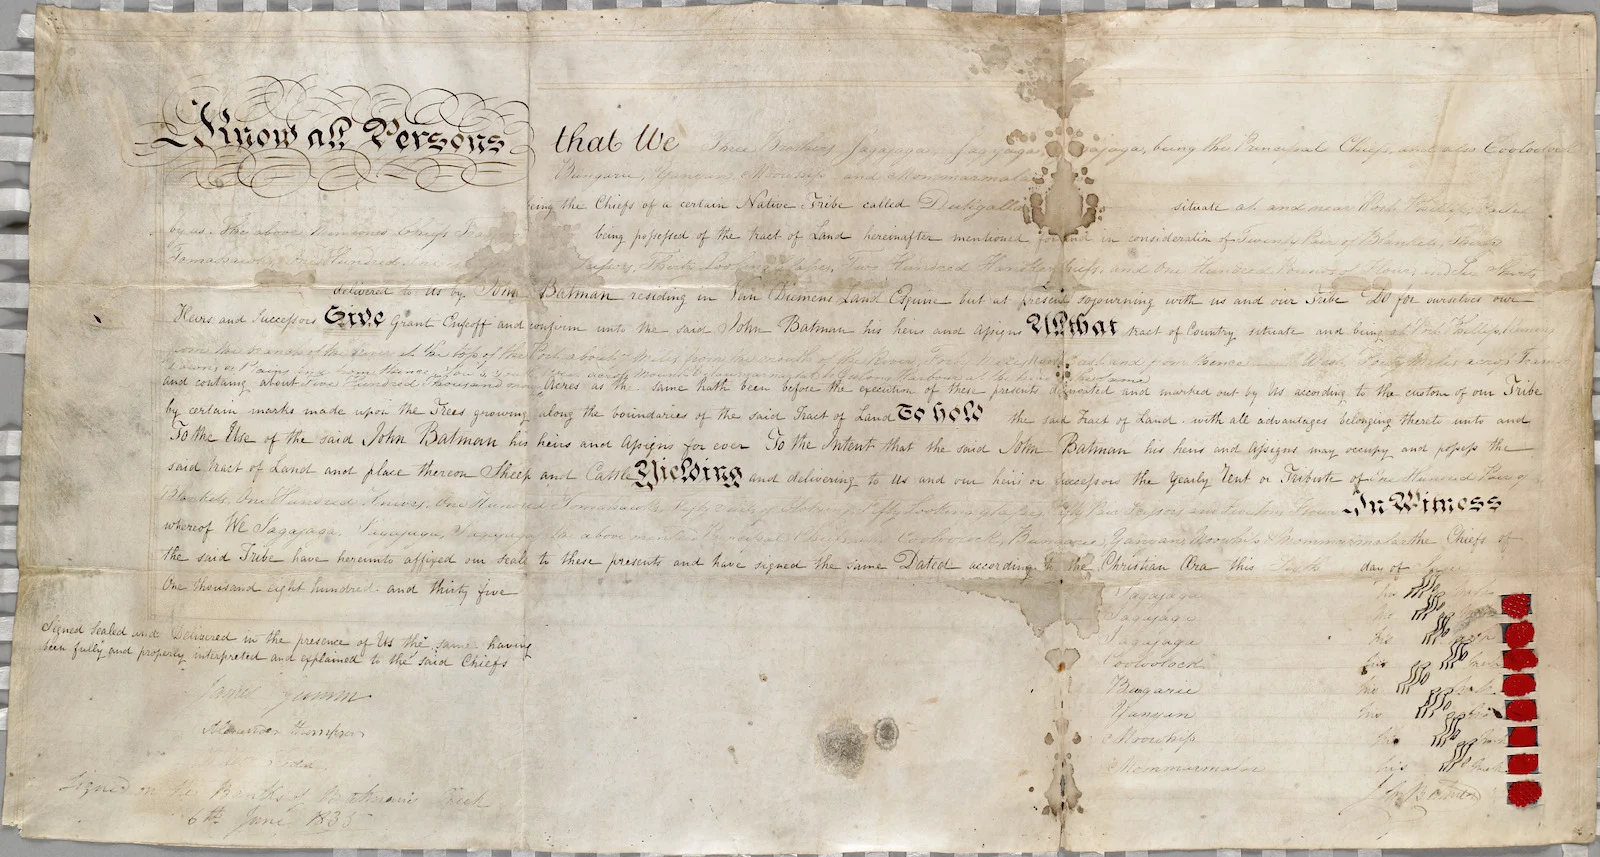 Know all Persons that We Three Brothers Jagajaga, Jagajaga, Jagajaga, being the Principal Chiefs, and also Cooloolock
Bungarie, Yanyan, Moowhip and Mommarmalar
being the Chiefs of a certain Native Tribe called Dutigallar situate at and near Port Phillip,
by us the above mentioned Chiefs being possessed of the tract of Land hereinafter mentioned for and in consideration of Twenty Pair of Blankets, Thirty
Tomahawks, One Hundred Scissors, Thirty Looking Glasses, Two Hundred Handkerchiefs, and One Hundred Pounds of Flour, and Six Shirts
delivered to Us by John Batman residing in Van Diemens Land Esquire but at present sojourning with us and our Tribe Do for ourselves our
Heirs and Successors Give Grant Enfeoff and confirm unto the said John Batman his heirs and assigns All that tract of Country situate and being at Port Phillip,
from the of the at the top of the Port about Miles from the mouth of the River, Miles and from thence West Forty Miles across
Downs or Plains and from thence across to Geelong Harbour at the head of the same
and containing about Five Hundred Thousand more Acres as the same hath been before the execution of these presents delineated and marked out by Us according to the custom of our Tribe
by certain marks made upon the Trees growing along the boundaries of the said Tract of Land To hold the said Tract of Land with all advantages belonging thereto unto and
To the Use of the said John Batman his heirs and assigns for ever To the Intent that the said John Batman his heirs and assigns may occupy and possess the
said tract of Land and place thereon Sheep and Cattle Yielding and delivering to Us and our heirs or successors the yearly Rent or Tribute of One Hundred Pair of
Blankets, One Hundred Knives, One Hundred Tomahawks, Fifty Suits of Fifty Looking glasses, Fifty Pair Scissors and Flour In Witness
whereof We Jagajaga, Jagajaga, Jagajaga, the above mentioned Principal Chiefs and Cooloolock, Bungarie, Yanyan, Moowhip & Mommarmalar the Chiefs of
the said Tribe have hereunto affixed our seals to these presents and have signed the same Dated according to the Christian Æra this Sixth day of June
One thousand eight hundred and thirty five
Signed Sealed and Delivered in the presence of Us the same having
been fully and properly interpreted and explained to the said Chiefs
James Gumm
Alexander Thompson
Signed on the Banks of Batman's Creek
6th June 1835
Jagajaga his mark
Jagajaga his mark
Jagajaga his mark
Cooloolock his mark
Bungarie his mark
Yanyan his mark
Moowhip his mark
Mommarmalar his mark
John Batman